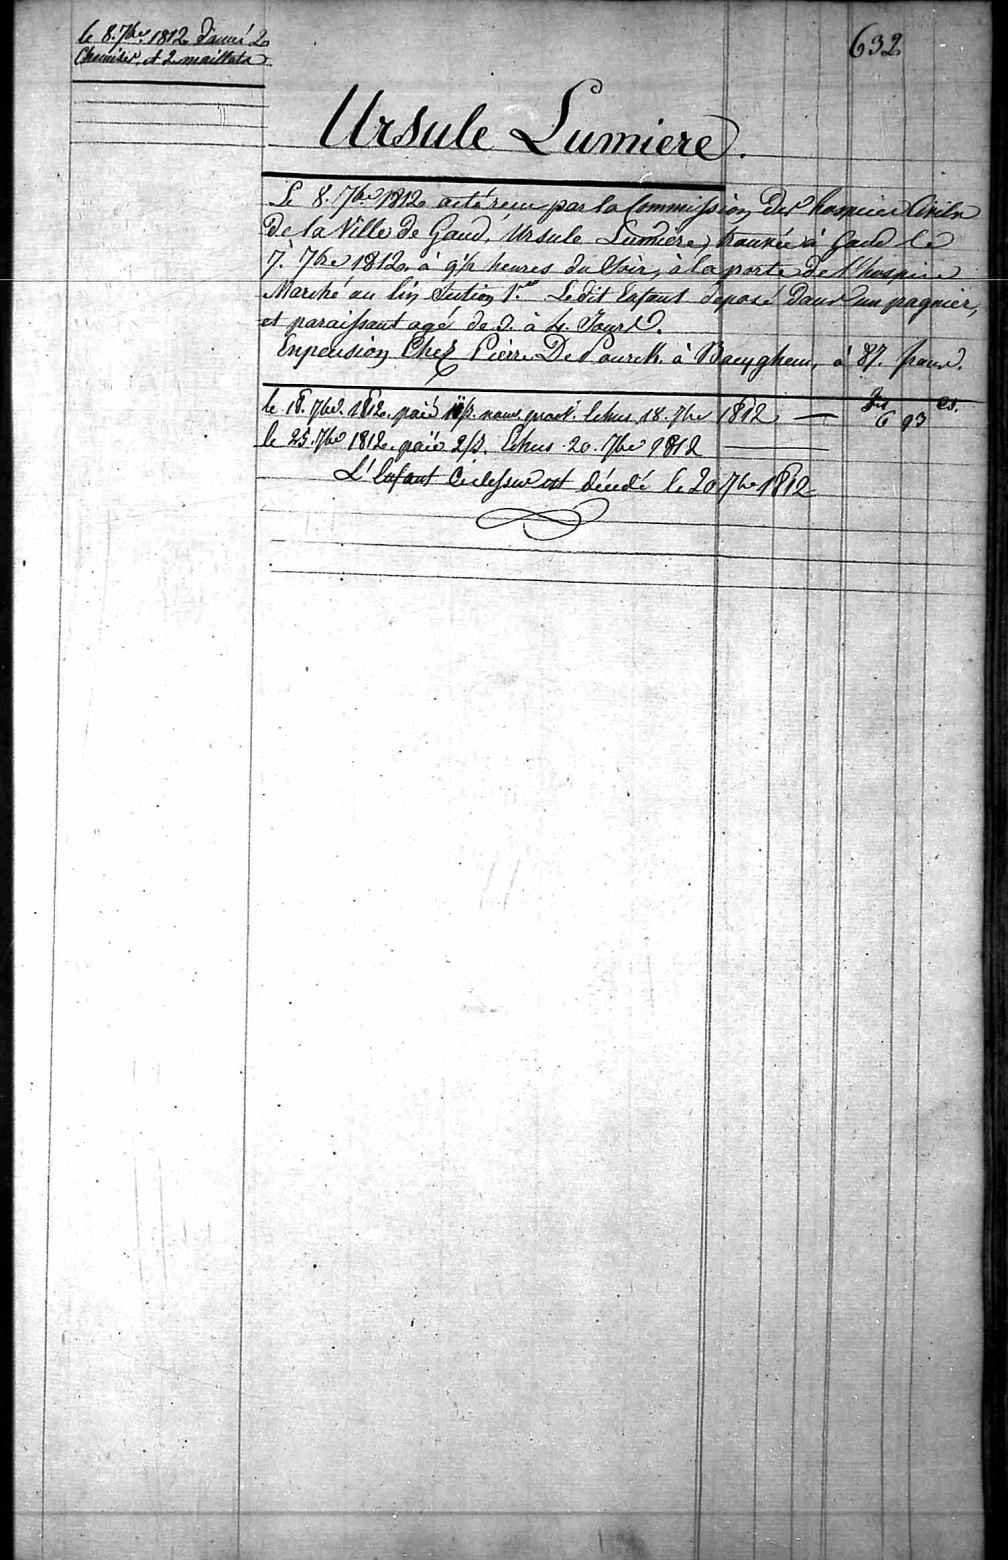 le 8. 7bre 1812 donné 2
Chemises, et 2 maillots
632
Ursule Lumiere.
Le 8. 7bre 1812 a été reçu par la Commission des hospices Civils
de la Ville de Gand, Ursule Lumière, trouvée à Gand le
7. 7bre 1812, à 9 1/2 heures du Soir, à la porte de l'hospice
Marché au lin Section 1.re Le dit Enfant deposé dans un pagnier,
et paraissant agé de 3. à 4. Jours.
Enpension Chez Pierre De à Baeyghem, à 87. francs.
frs cs.
le 18. 7bre 1812. paié echus 18. 7bre 1812 — 6 93
le 25. 7bre 1812. paié Echus 20. 7bre 1812
L'Enfant Cidessus est décédé le 20 7bre 1812